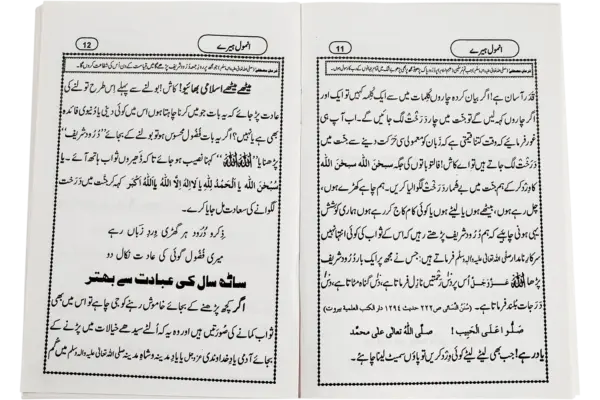 انمول ہیرے
11
قدر آسان ہے! اگر بیان کردہ چاروں کلمات میں سے ایک کلمہ کہیں تو ایک اور
اگر چاروں کہہ لیں گے تو جنت میں چار درخت لگ جائیں گے۔ اب آپ ہی
غور فرمایئے کہ وقت کتنا قیمتی ہے کہ زبان کو معمولی سی حرکت دینے سے جنت میں
درخت لگ جاتے ہیں تو اے کاش! فالتو باتوں کی جگہ سبحٰن اللہ سبحٰن اللہ
کا ورد کر کے ہم جنت میں بے شمار درخت لگوا لیا کریں۔ ہم چاہے کھڑے ہوں،
چل رہے ہوں، بیٹھے ہوں یا لیٹے ہوں یا کوئی کام کاج کر رہے ہوں ہماری کوشش
یہی ہونی چاہیے کہ ہم درود شریف پڑھتے رہیں کہ اس کے ثواب کی کوئی انتہا نہیں
سرکار نامدار صلی اللہ تعالیٰ علیہ والہ وسلم فرماتے ہیں: جس نے مجھ پر ایک بار درود شریف
پڑھا اللہ عزوجل اس پر دس رحمتیں نازل فرماتا ہے، دس گناہ مٹاتا ہے، دس
درجات بلند فرماتا ہے۔ (سنن النسائی ص ۲۲۲ حدیث ۱۲۹۴ دار الکتب العلمیۃ بیروت)
صلوا علی الحبیب! صلی اللہ تعالیٰ علی محمد
یاد رہے! جب بھی لیٹے لیٹے کوئی ورد کریں تو پاؤں سمیٹ لینا چاہئے۔
انمول ہیرے
12
میٹھے میٹھے اسلامی بھائیو! کاش! بولنے سے پہلے اس طرح تولنے کی
عادت پڑ جائے کہ یہ بات جو میں کرنا چاہتا ہوں اس میں کوئی دینی یا دنیوی فائدہ
بھی ہے یا نہیں؟ اگر یہ بات فضول محسوس ہو تو بولنے کے بجائے ”درود شریف“
پڑھنا یا ”اللہ اللہ“ کہنا نصیب ہو جائے تا کہ ڈھیروں ثواب ہاتھ آئے۔ یا
سبحٰن اللہ یا الحمد للہ یا لا الہ الا اللہ یا اللہ اکبر کہہ کر جنت میں درخت
لگوانے کی سعادت مل جایا کرے۔
ذکر و درود ہر گھڑی ورد زباں رہے
میری فضول گوئی کی عادت نکال دو
ساٹھ سال کی عبادت سے بہتر
اگر کچھ پڑھنے کے بجائے خاموش رہنے کو جی چاہے تو اس میں بھی
ثواب کمانے کی صورتیں ہیں اور وہ یہ کہ الٹے سیدھے خیالات میں پڑنے کے
بجائے آدمی یادِ خداوندی عزوجل یا یادِ مدینہ و شاہِ مدینہ صلی اللہ تعالیٰ علیہ والہ وسلم میں گم